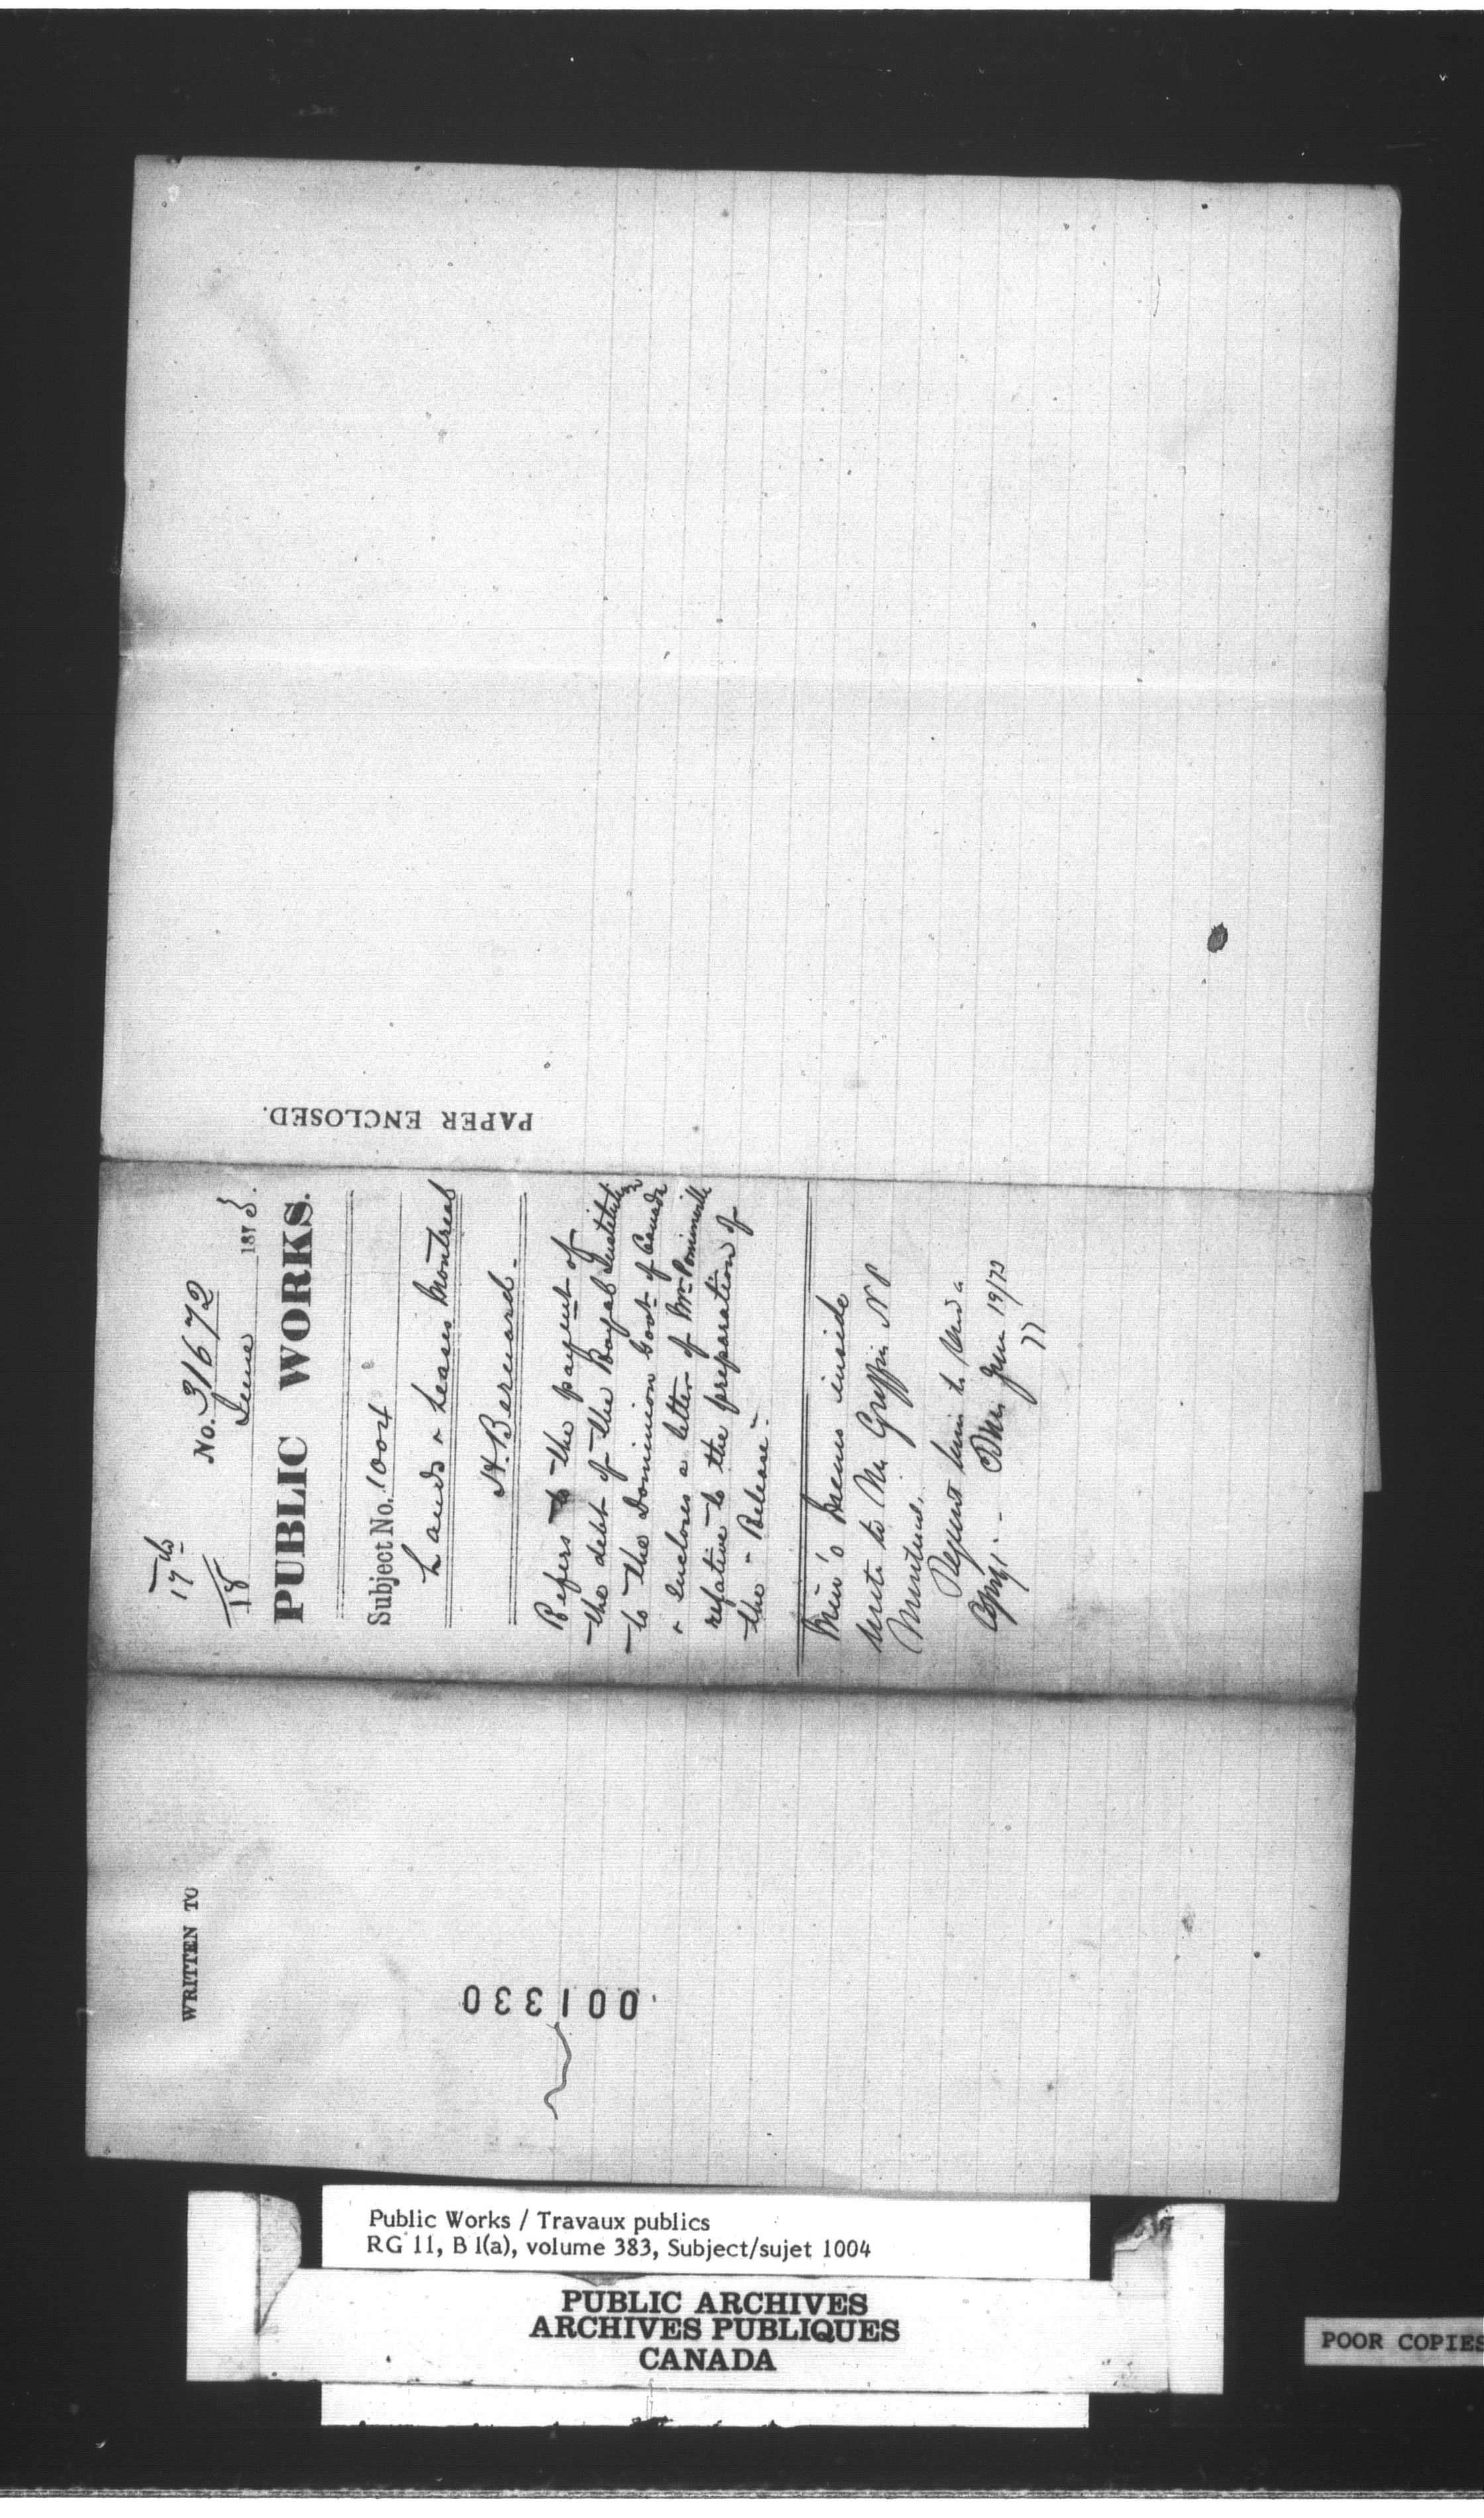 17th
18
No. 31672
June 1873.
PUBLIC WORKS.
Subject No. 1004
Lands & Leases Montreal
H. Bernard.
Refers to the payent of
the debt of the Royal Institution
to the Dominion Govt of Canada
& Incloses a letter of Mr Pominville
relative to the preparation of
the "Release".
Min's memo inside
write to Mr Griffin NP
Montreal.
Request him to send a
Copy. June 19/73
PAPER ENCLOSED.
WRITTEN TO
001330
Public Works / Travaux publics
RG 11, B 1(a), volume 383, Subject/sujet 1004
PUBLIC ARCHIVES
ARCHIVES PUBLIQUES
CANADA
POOR COPIES